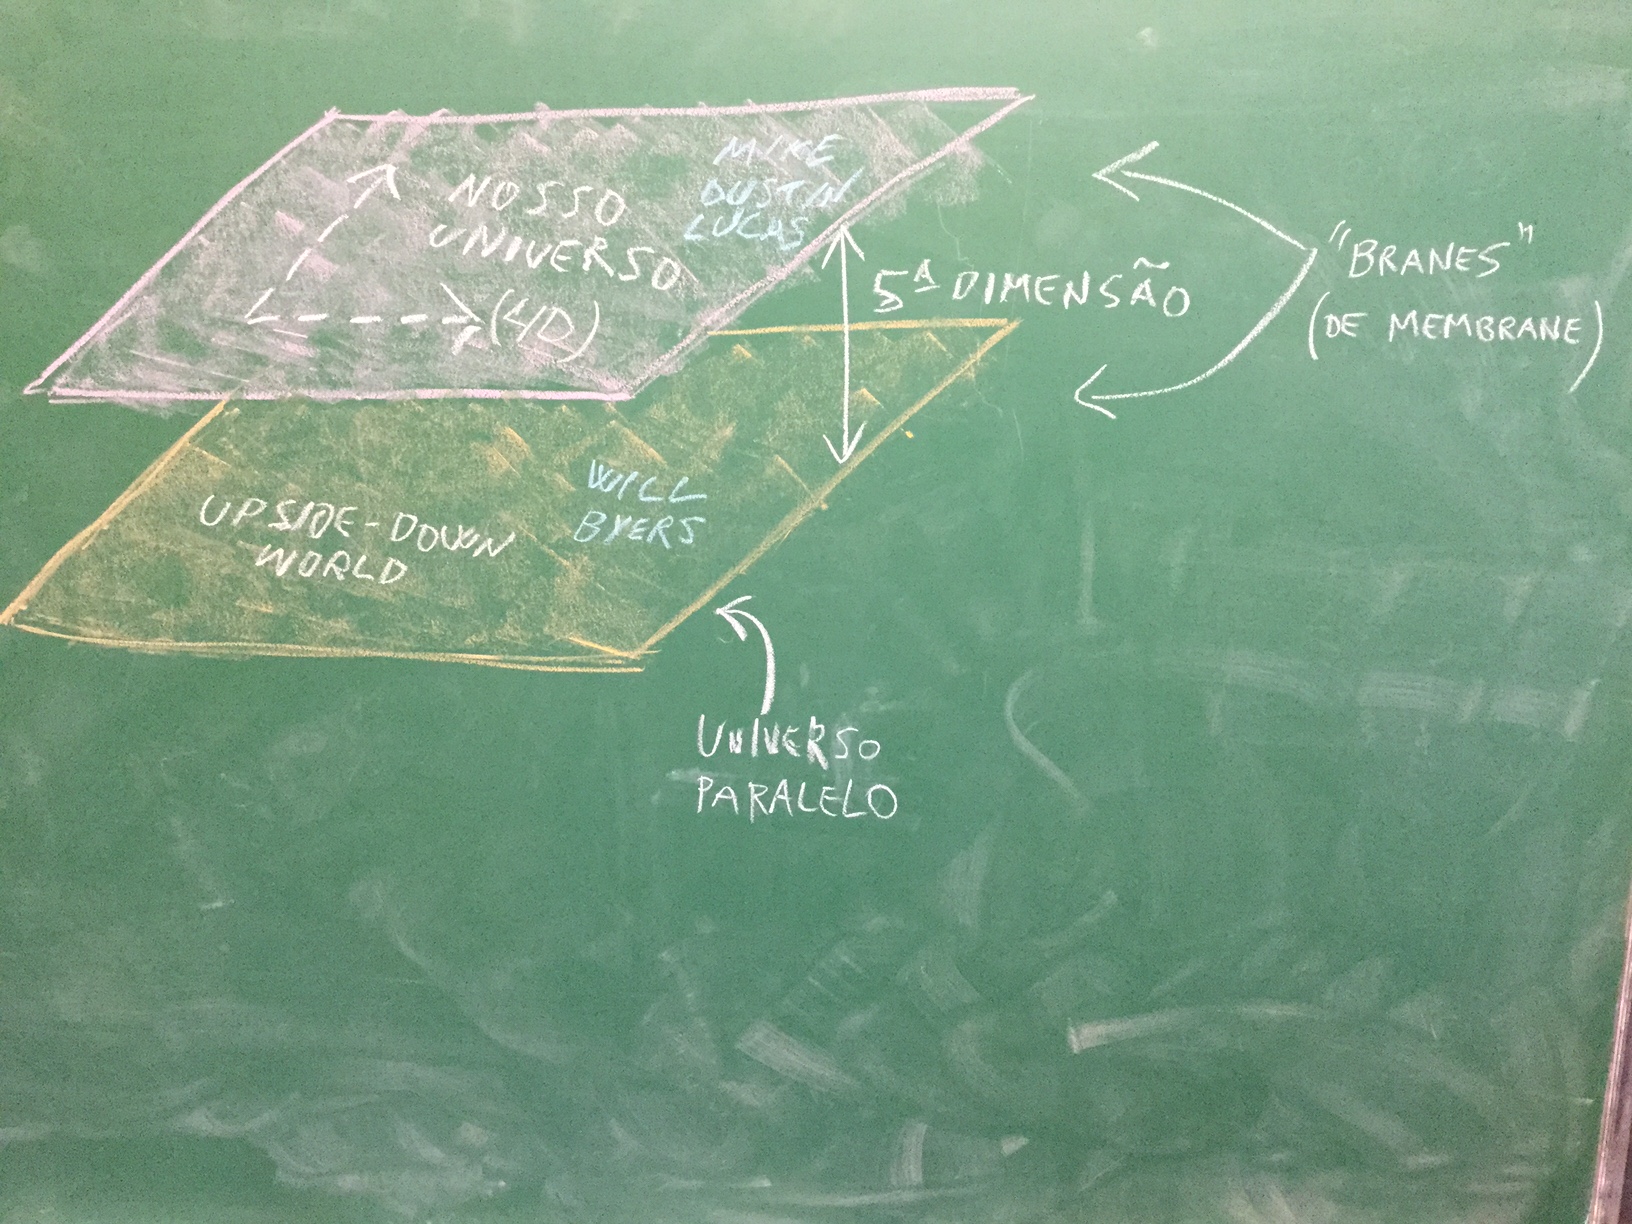 MIKE
DUSTIN
LUCAS
NOSSO
UNIVERSO
(4D)
5ª DIMENSÃO
"BRANES"
(DE MEMBRANE)
UPSIDE-DOWN
WORLD
WILL
BYERS
UNIVERSO
PARALELO